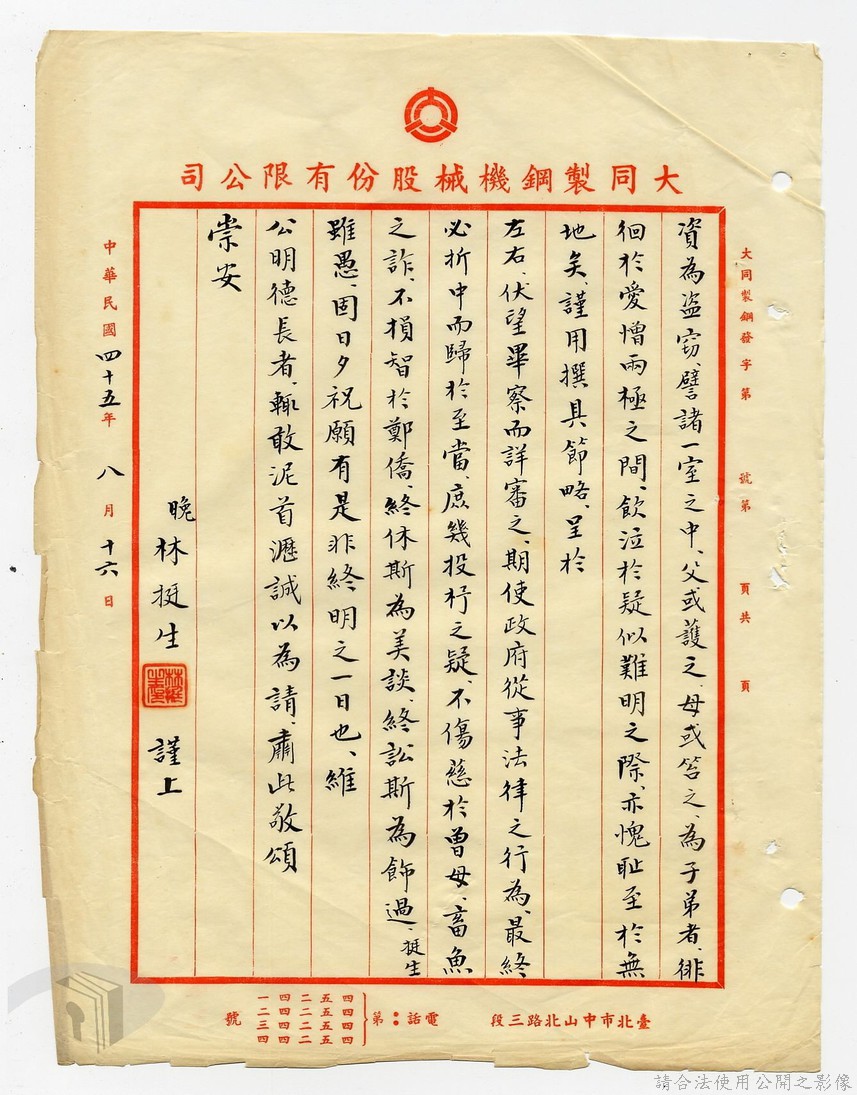 大同製鋼機械股份有限公司
大同製鋼發字第　號第　頁共　頁
資為盜窃、譬諸一室之中、父或護之、母或笞之、為子弟者、徘
徊於愛憎兩極之間、飲泣於疑似難明之際、亦愧耻至於無
地矣、謹用撰具節略、呈於
左右、伏望畢察而詳審之、期使政府從事法律之行為、最終
必折中而歸於至當、庶幾投杼之疑、不傷慈於曾母、畜魚
之詐、不損智於鄭僑、終休斯為美談、終訟斯為飾過、挺生
雖愚、固日夕祝願有是非終明之一日也、維
公明德長者、輒敢泥首瀝誠以為請、肅此敬頌
崇安
晚林挺生
謹上
中華民國四十五年八月十六日
臺北市中山北路三段
電話：第
四五二四一
四五二四二
四五二四三
四五二四四
號
請合法使用公開之影像